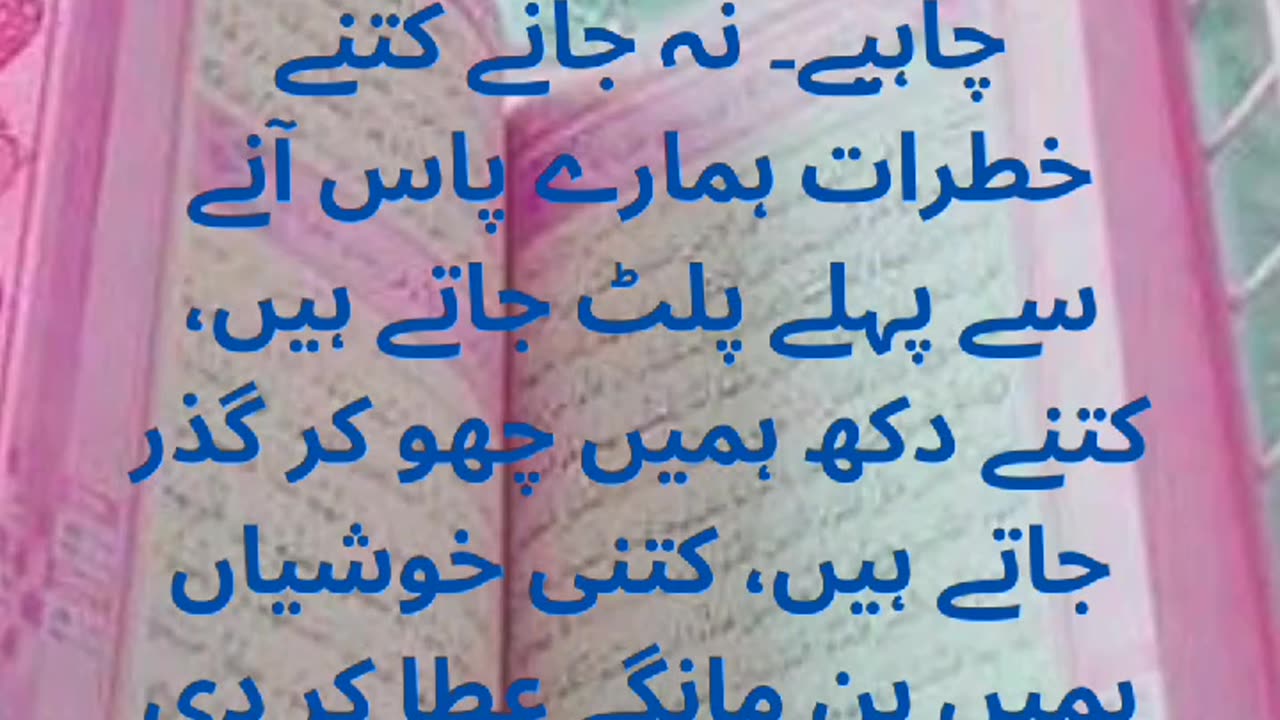 چاہیے۔ نہ جانے کتنے
خطرات ہمارے پاس آنے
سے پہلے پلٹ جاتے ہیں،
کتنے دکھ ہمیں چھو کر گذر
جاتے ہیں، کتنی خوشیاں
ہمیں بن مانگے عطا کر دی